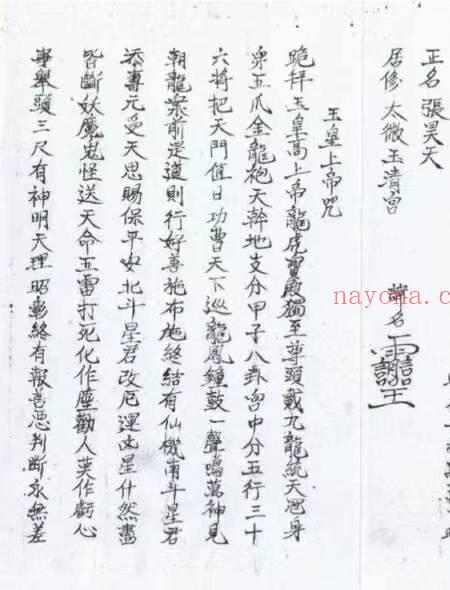 正名張昊天
居修太微玉清宮
諱名
玉皇上帝咒
跪拜玉皇高上帝龍虎寶殿獨至尊頭戴九龍統天冠身
穿五爪金龍袍天幹地支分甲子八卦宮中分五行三十
六將把天門值日功曹天下巡龍鳳鐘鼓一聲鳴萬神見
朝龍案前是道則行好善施布施終結有仙機南斗星君
添壽元受天恩賜保平安北斗星君改厄運凶星什然盡
皆斷妖魔鬼怪送天命五雷打死化作塵勸人莫作虧心
事舉頭三尺有神明天理昭彰終有報善惡判斷永無差
nayona.cn